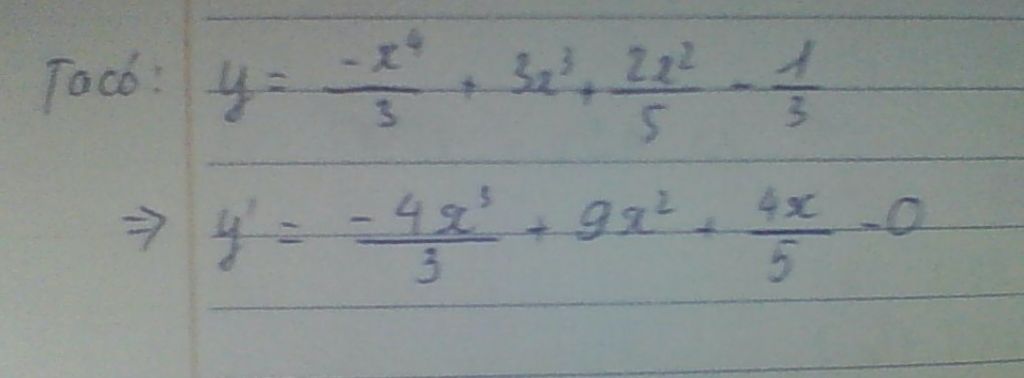 Ta có: y = \frac{-x^4}{3} + 3x^3 + \frac{2x^2}{5} - \frac{1}{3}
⇒ y' = \frac{-4x^3}{3} + 9x^2 + \frac{4x}{5} - 0